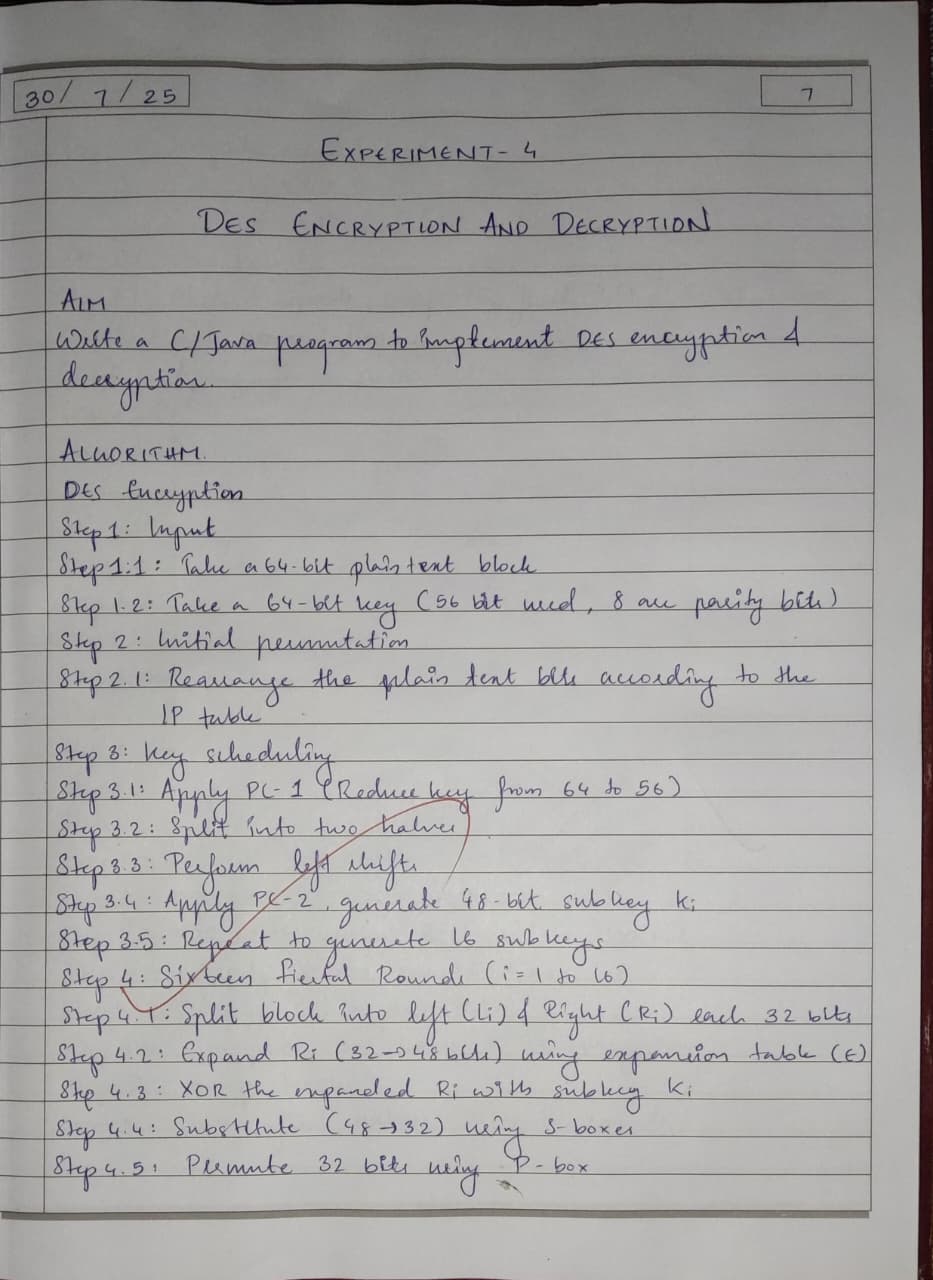 30/ 7 / 25
7
EXPERIMENT- 4
DES ENCRYPTION AND DECRYPTION
AIM
Write a C/Java program to implement DES encryption &
decryption.
ALGORITHM.
DES Encryption
Step 1: Input
Step 1.1: Take a 64-bit plain text block
Step 1.2: Take a 64-bit key (56 bit used, 8 are parity bits)
Step 2: Initial permutation
Step 2.1: Rearrange the plain text bits according to the
IP table
Step 3: Key scheduling
Step 3.1: Apply PC-1 (Reduce key from 64 to 56)
Step 3.2: Split into two halves
Step 3.3: Perform left shifts
Step 3.4: Apply PC-2, generate 48-bit subkey Ki
Step 3.5: Repeat to generate 16 subkeys
Step 4: Sixteen fiestal Rounds (i=1 to 16)
Step 4.1: Split block into left (Li) & Right (Ri) each 32 bits
Step 4.2: Expand Ri (32→48 bits) using expansion table (E)
Step 4.3: XOR the expanded Ri with subkey Ki
Step 4.4: Substitute (48→32) using S-boxes
Step 4.5: Permute 32 bits using P-box